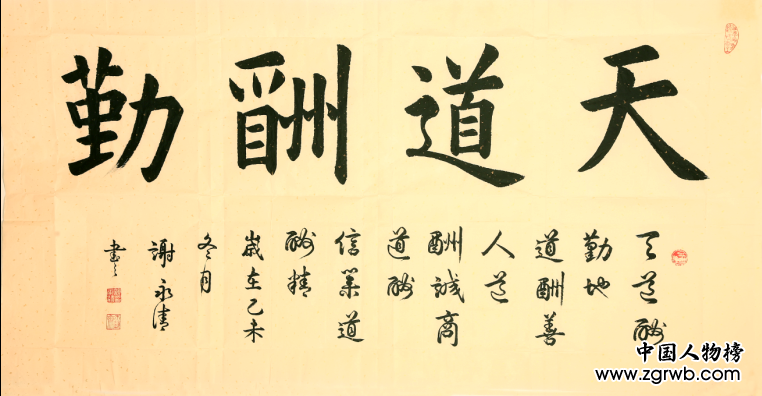 天道酬勤
天道酬
勤地
道酬善
人道
酬誠商
道酬
信業道
酬精
歲在乙未
冬月
謝永清
書之
中国人物榜
www.zgrwb.com